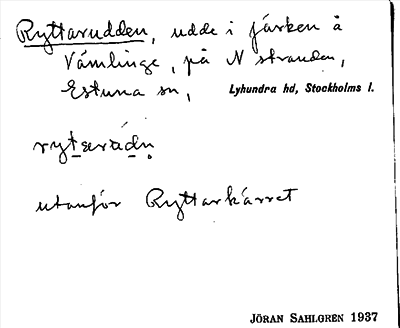 Ryttarudden, udde i fjärken å
Vämlinge, på N stranden,
Estuna sn, Lyhundra hd, Stockholms l.
utanför Ryttarkärret
JÖRAN SAHLGREN 1937